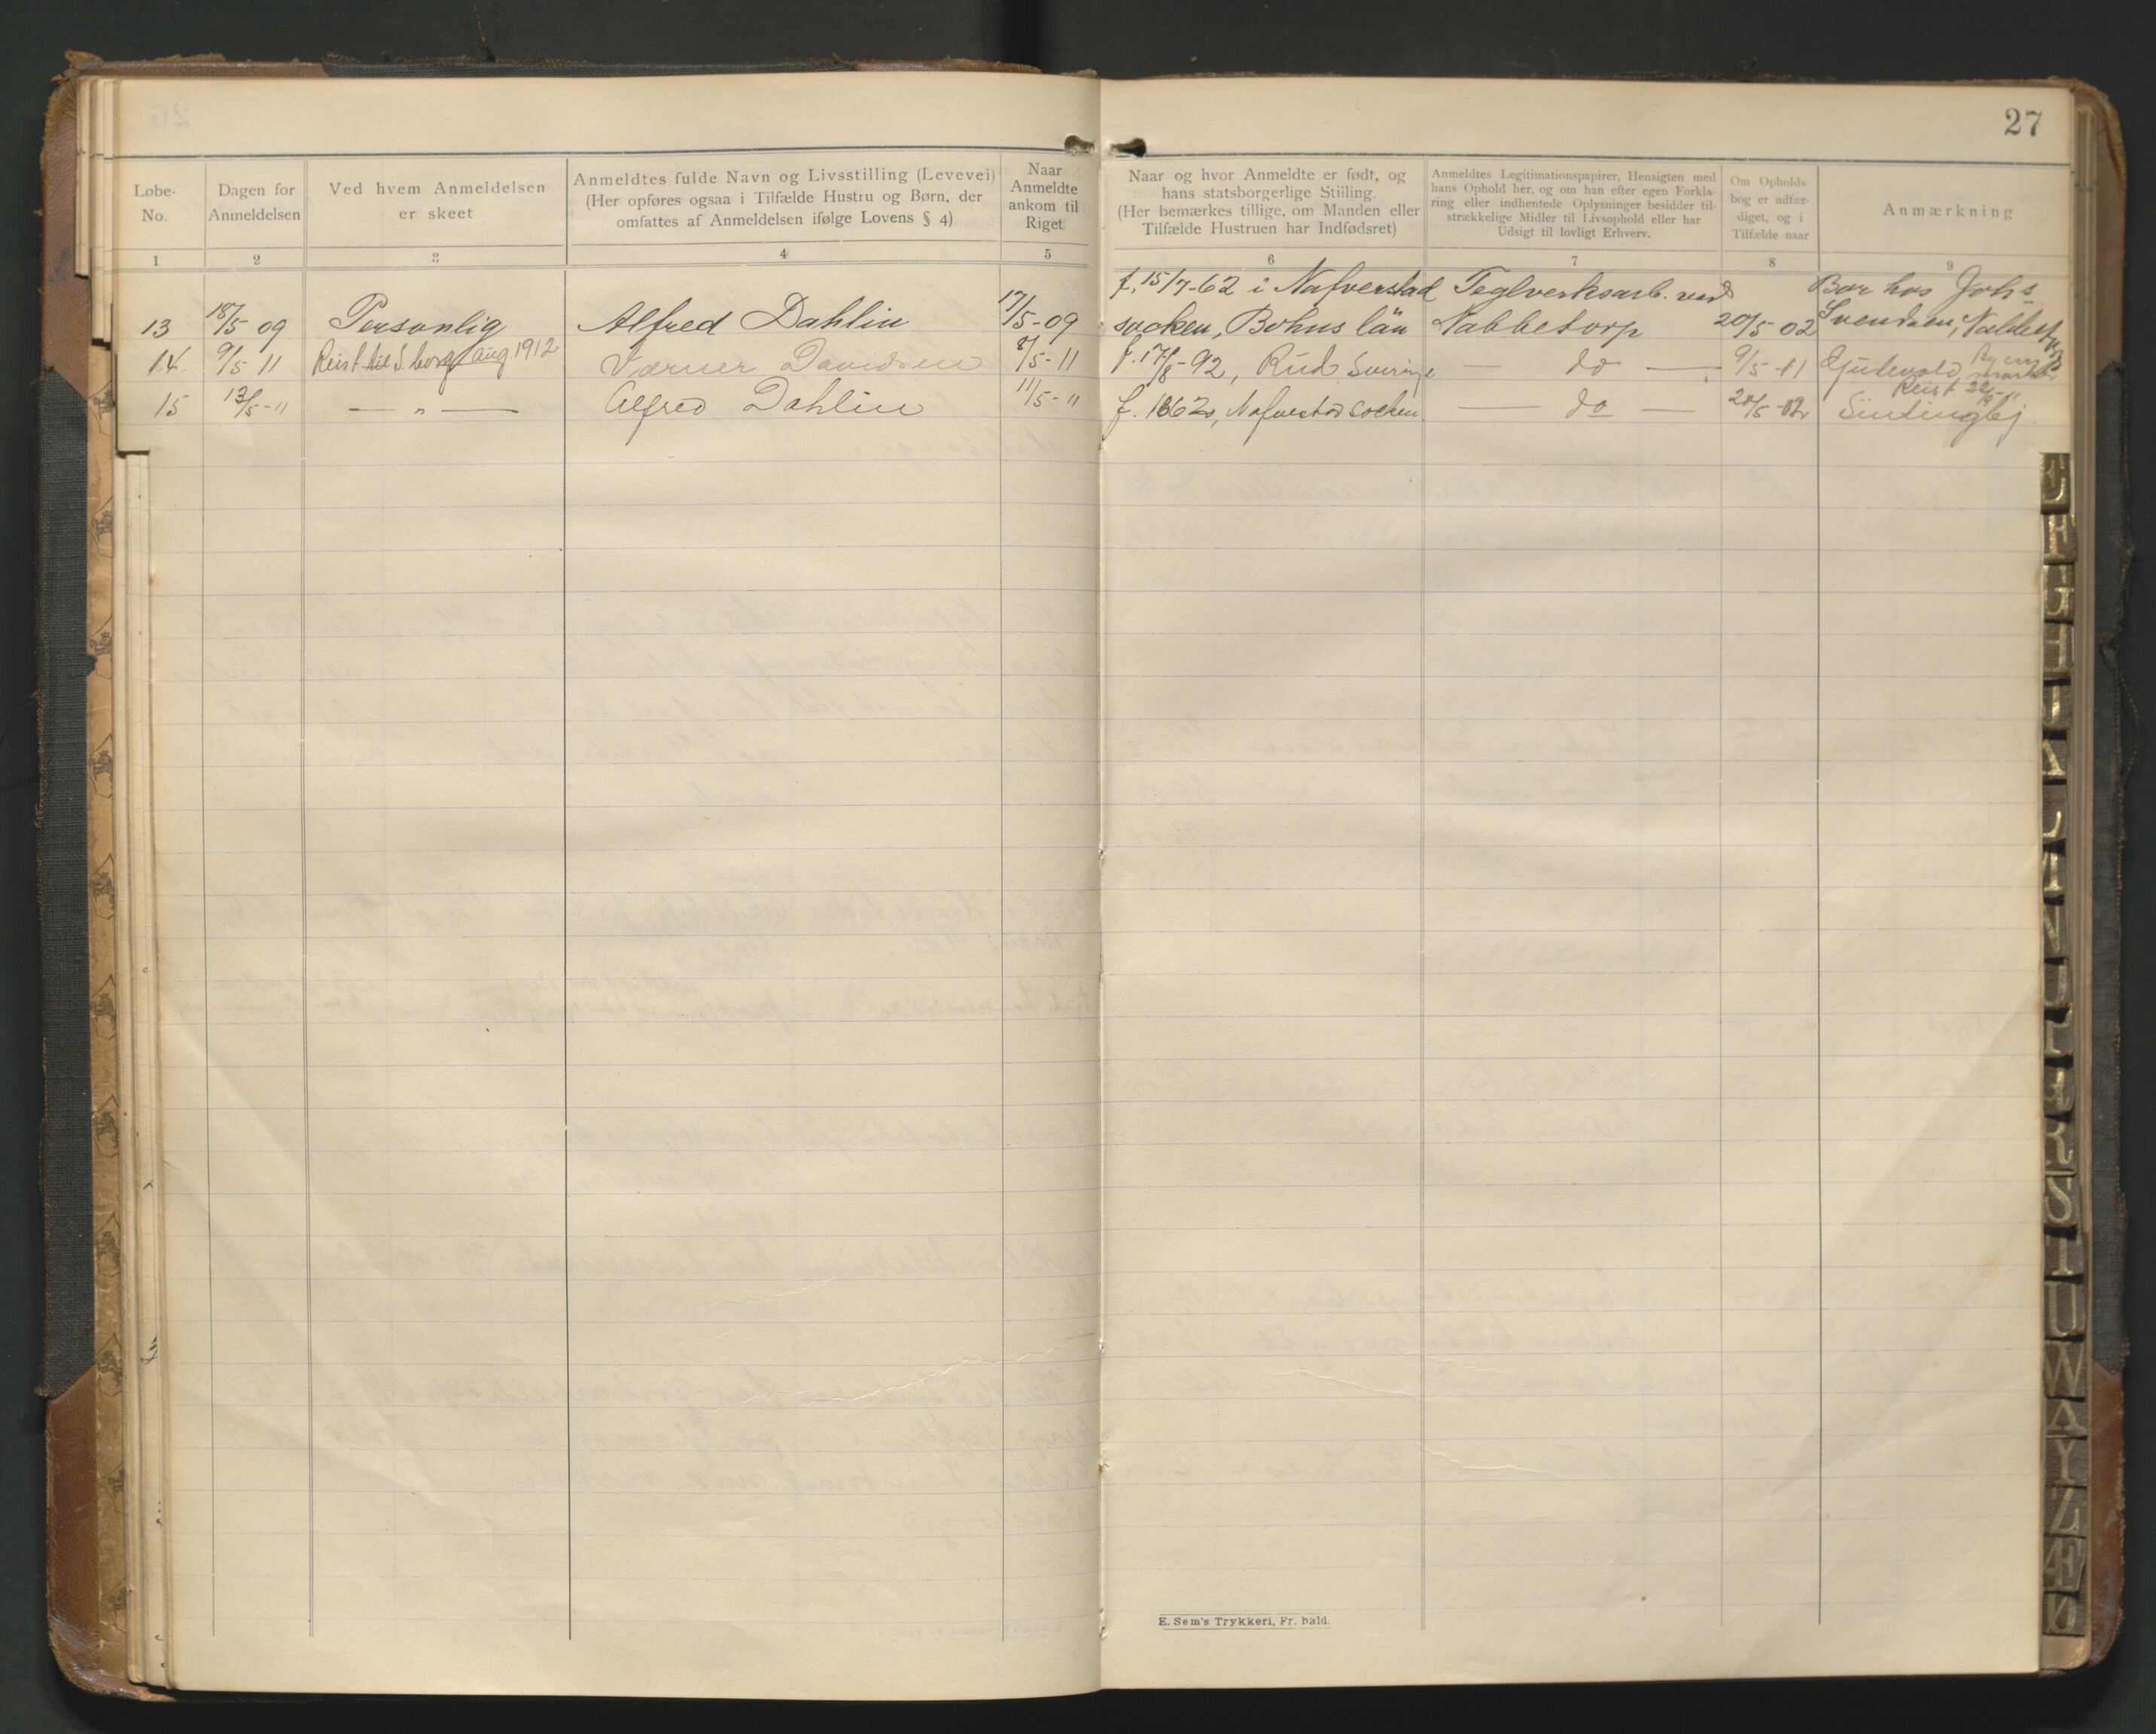 27
Løbe-No.
Dagen for Anmeldelsen
Ved hvem Anmeldelsen er skeet
Anmeldtes fulde Navn og Livsstilling (Levevei)
(Her opføres ogsaa i Tilfælde Hustru og Børn, der
omfattes af Anmeldelsen ifølge Lovens § 4)
Naar Anmeldte ankom til Riget
Naar og hvor Anmeldte er født, og
hans statsborgerlige Stilling.
(Her bemærkes tillige, om Manden eller
Tilfælde Hustruen har Indfødsret)
Anmeldtes Legitimationspapirer, Hensigten med
hans Ophold her, og om han efter egen Forkla-
ring eller indhentede Oplysninger besidder til-
strækkelige Midler til Livsophold eller har
Udsigt til lovligt Erhverv.
Om Opholds-
bog er udfær-
diget, og i
Tilfælde naar
Anmærkning
1 2 3 4 5 6 7 8 9
f. 15/7-62 i Nafverstad Teglverksarb. ved Bor hos Johs
13 18/5 09 Personlig Alfred Dahlin 17/5-09 socken, Bohus län Nabbetorp 20/5 02 Svendsen, Nabbetorp
14 9/5 11 Reist til S. borg Aug. 1912 Værner Davidsen 8/5-11 f. 17/8-92, Rud Sverige — do — 9/5-11
Reist
15 13/5-11 — „ — Alfred Dahlin 11/5-11 f. 1862, Nafverstad socken — do — 20/5-02
E. Sem's Trykkeri, Fr. hald.
E
F
G
H
I
K
L
M
N
O
P
Q
R
S
T
U
W
X
Y
Z
Æ
Ø